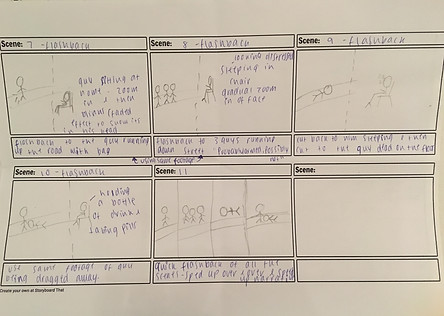 Scene: 7 - flashback
guy sitting at
home. zoom
in & then
effect to show it's
in his head
flashback to the guy running
up the road with bag
Scene: 8 - flashback
looking distressed
sleeping in
chair
gradual zoom
in of face
flashback to 3 guys running
down street
using same footage
Scene: 9 - flashback
cut back to him sleeping & then
cut to the guy dead on the floor
Scene: 10 - flashback
holding
a bottle
of drink &
taking pills
use same footage of guy
being dragged away.
Scene: 11
quick flashback of all the
scenes - sped up over & over & speed
up narration
Scene:
Create your own at Storyboard That